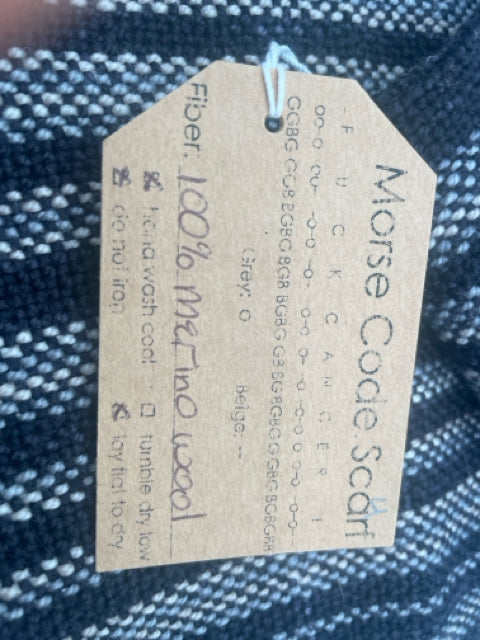 Morse Code Scarf
- F U C K C A N C E R !
oo-o oo- -o-o -o- -o-o o- -o -o-o o o-o -o-o--
GGBG GGB BGBG BGB BGBG GB BG BGBG G GBG BGBGBB
Grey: o Beige: --
Fiber: 100% merino wool
hand wash cool tumble dry low
do not iron lay flat to dry